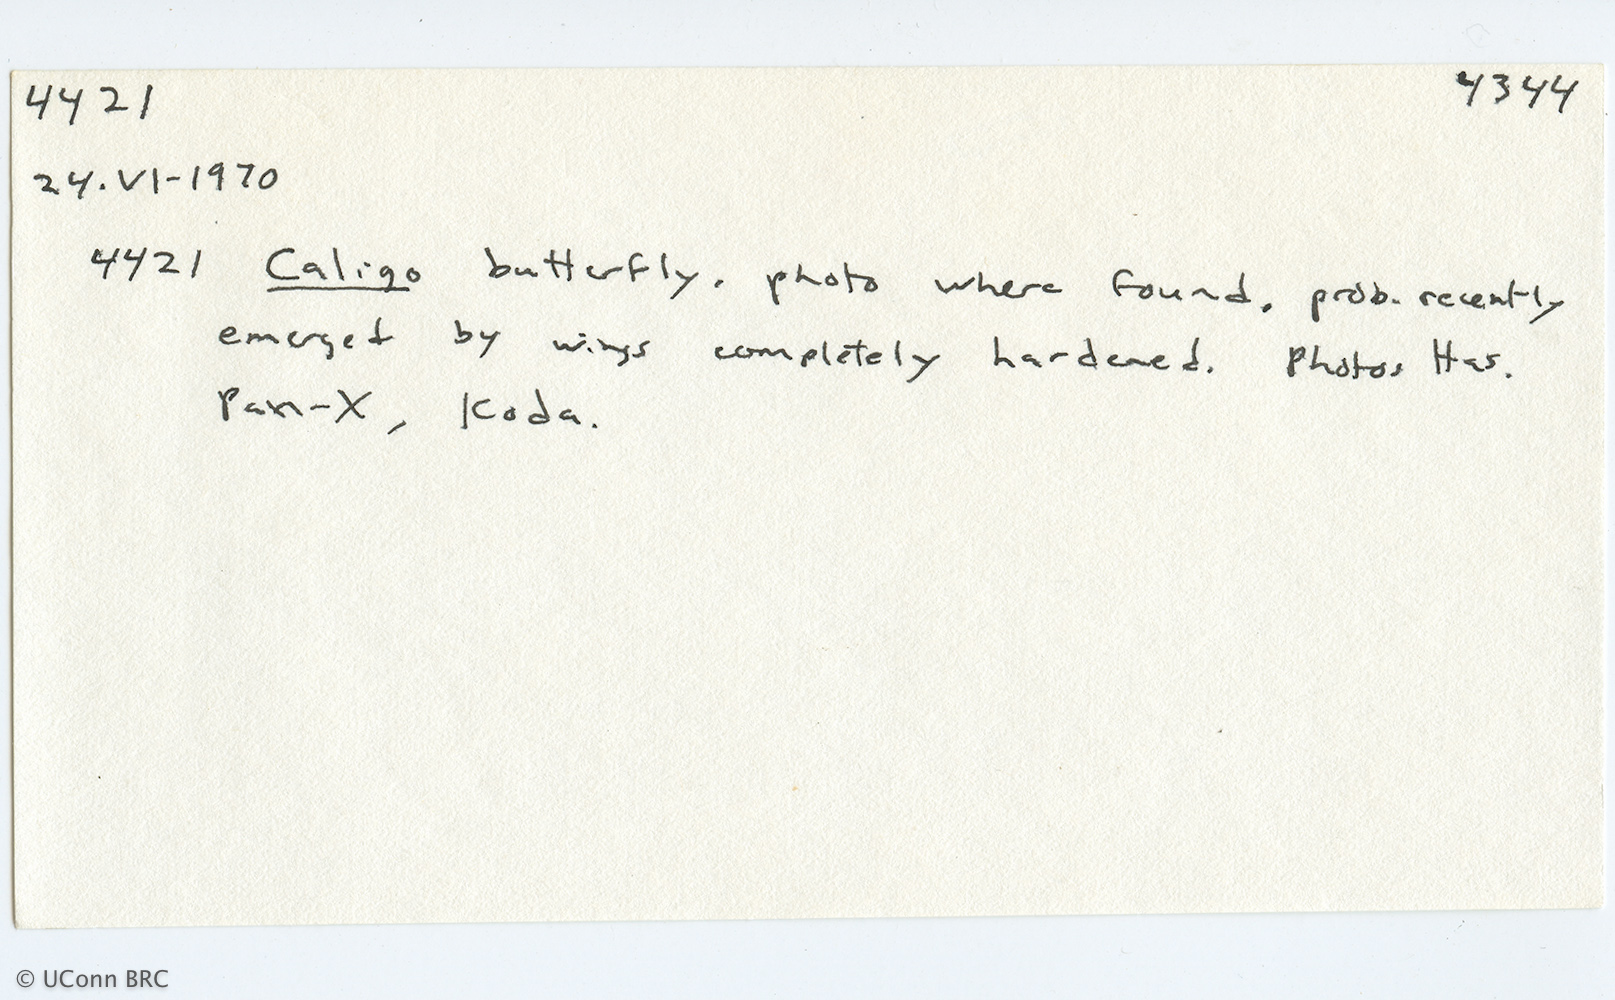 4421 4344
24.VI-1970
4421 Caligo butterfly. photo where found. prob. recently
emerged by wings completely hardened. Photos Has.
Pan-X, Koda.
© UConn BRC